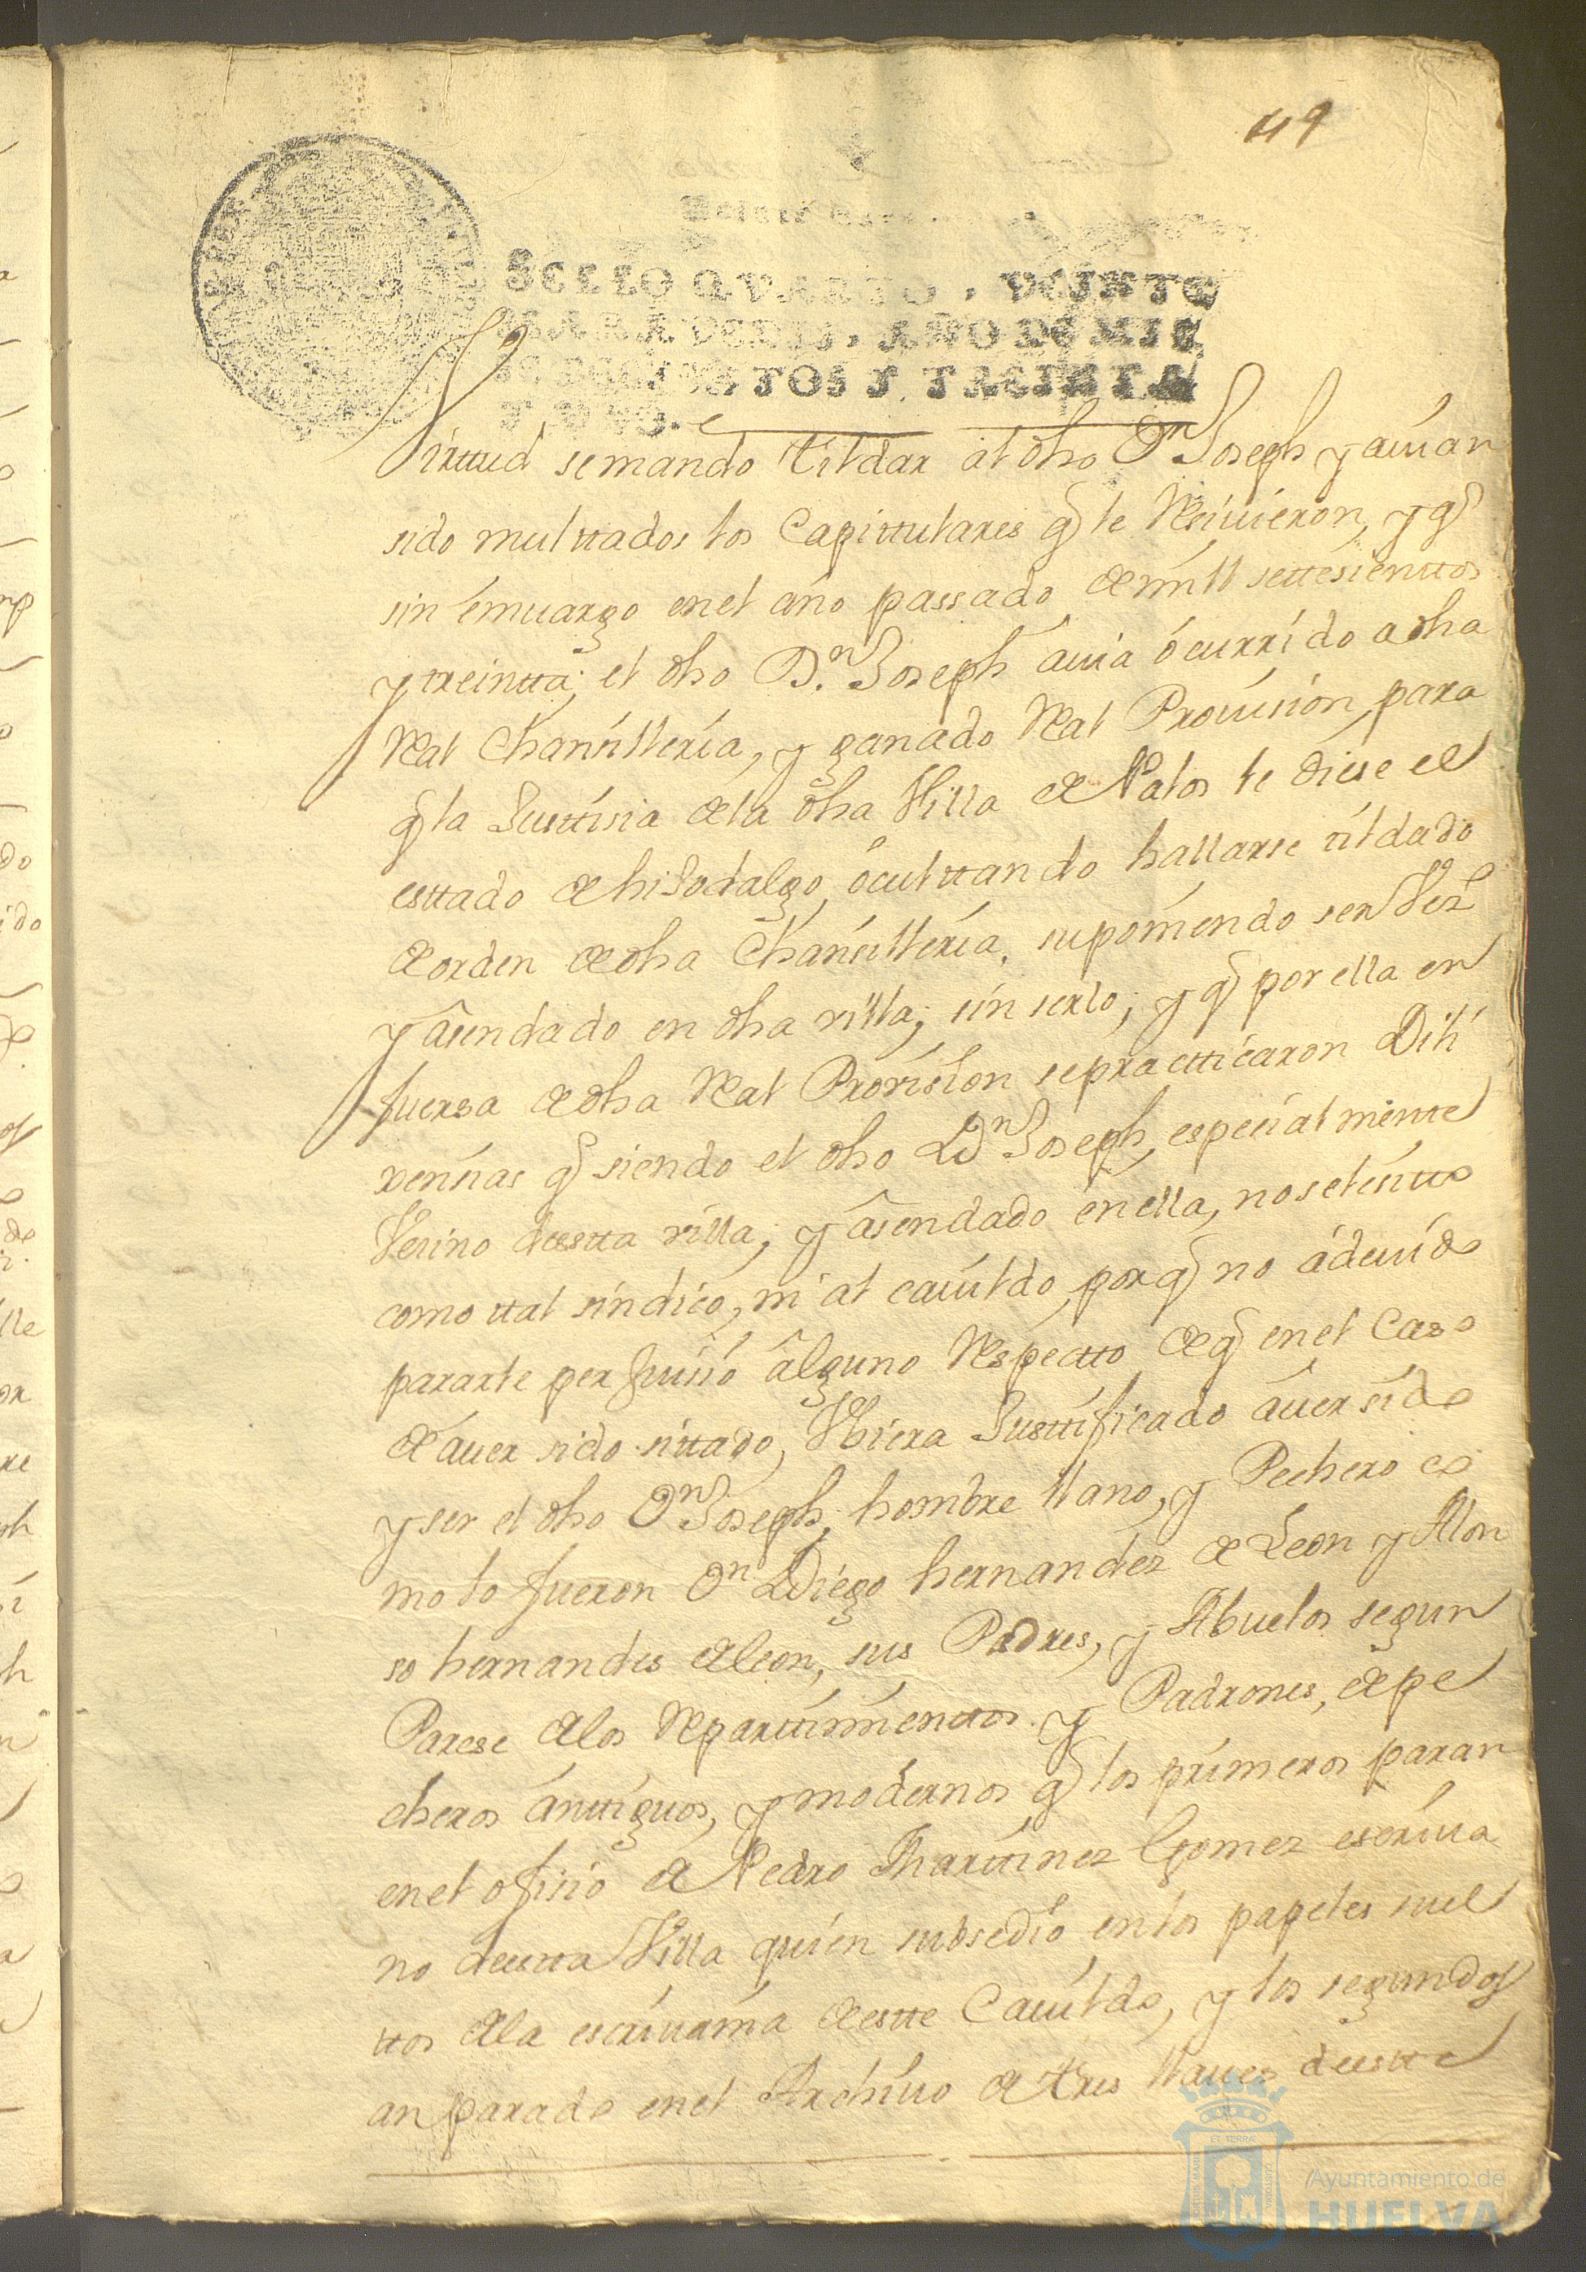 49
SELLO QVARTO, VEINTE
MARAVEDIS, AÑO DE MIL
SETECIENTOS Y TREINTA
Y VNO.
Virttud se mando tildar al dho Dn Joseph y auian
sido multtados los Capittulares q le Resiuieron, y q
sin emuargo en el año passado de mill settesienttos
y treintta, el dho Dn. Joseph auia ocurrido a dha
Real Chansilleria, y ganado Real Prouision para
q la Justtisia de la dha Villa de Palos le diese el
esttado de hiJodalgo, ocultando hallarse tildado
de orden de dha Chansilleria, suponiendo ser Vezo
y asendado en dha villa, sin serlo, y q por ella en
fuersa de dha Real Provision se practticaron Dili
xensias q siendo el dho Dn Joseph, espesialmentte
Vesino de estta villa, y asendado en ella, no se le sitto
como ttal sindico, ni al cauildo, por q no a deuido
pararle perJuisio alguno Respectto de q en el Caso
de auer sido sittado, Vbiera Justtificado auer sido
y ser el dho Dn Joseph, hombre llano, y Pechero co
mo lo fueron Dn Diego hernandez de Leon y Alon
so hernandes de leon, sus Padres, y Abuelos segun
Parese de los Reparttimienttos y Padrones, de pe
cheros anttiguos, y modernos q los primeros paran
en el ofisio de Pedro Marttinez Gomez escriua
no de estta Villa quien subsedio en los papeles suel
ttos de la escriuania de estte Cauildo, y los segundos
an parado en el Archiuo de tres llaues de estte
Ayuntamiento de
HUELVA